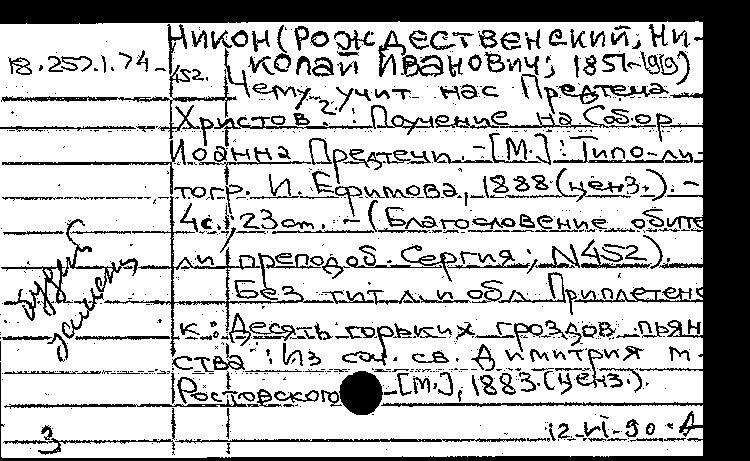 Никон (Рождественский, Ни-
18.257.1.74- колай Иванович; 1851-1919)
452. Чему учит нас Предтеча
Христов? : Поучение на Собор
Иоанна Предтечи. - [М.] : Типо-ли-
тогр. И. Ефимова, 1888 (ценз.). -
4 с.; 23 см. - (Благословение обите
ли преподоб. Сергия; N 452).
Без тит л. и обл Приплетено
к: Десять горьких гроздов пьян
ства : Из соч. св. Димитрия м.
Ростовского - [М.], 1883. (ценз.).
12-VI-90
3